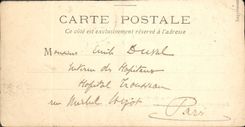 CARTE POSTALE
Ce côté est exclusivement réservé à l'adresse
Monsieur Emile
Interne des Hopitaux
Hopital Trousseau
rue Michel Bizot
Paris